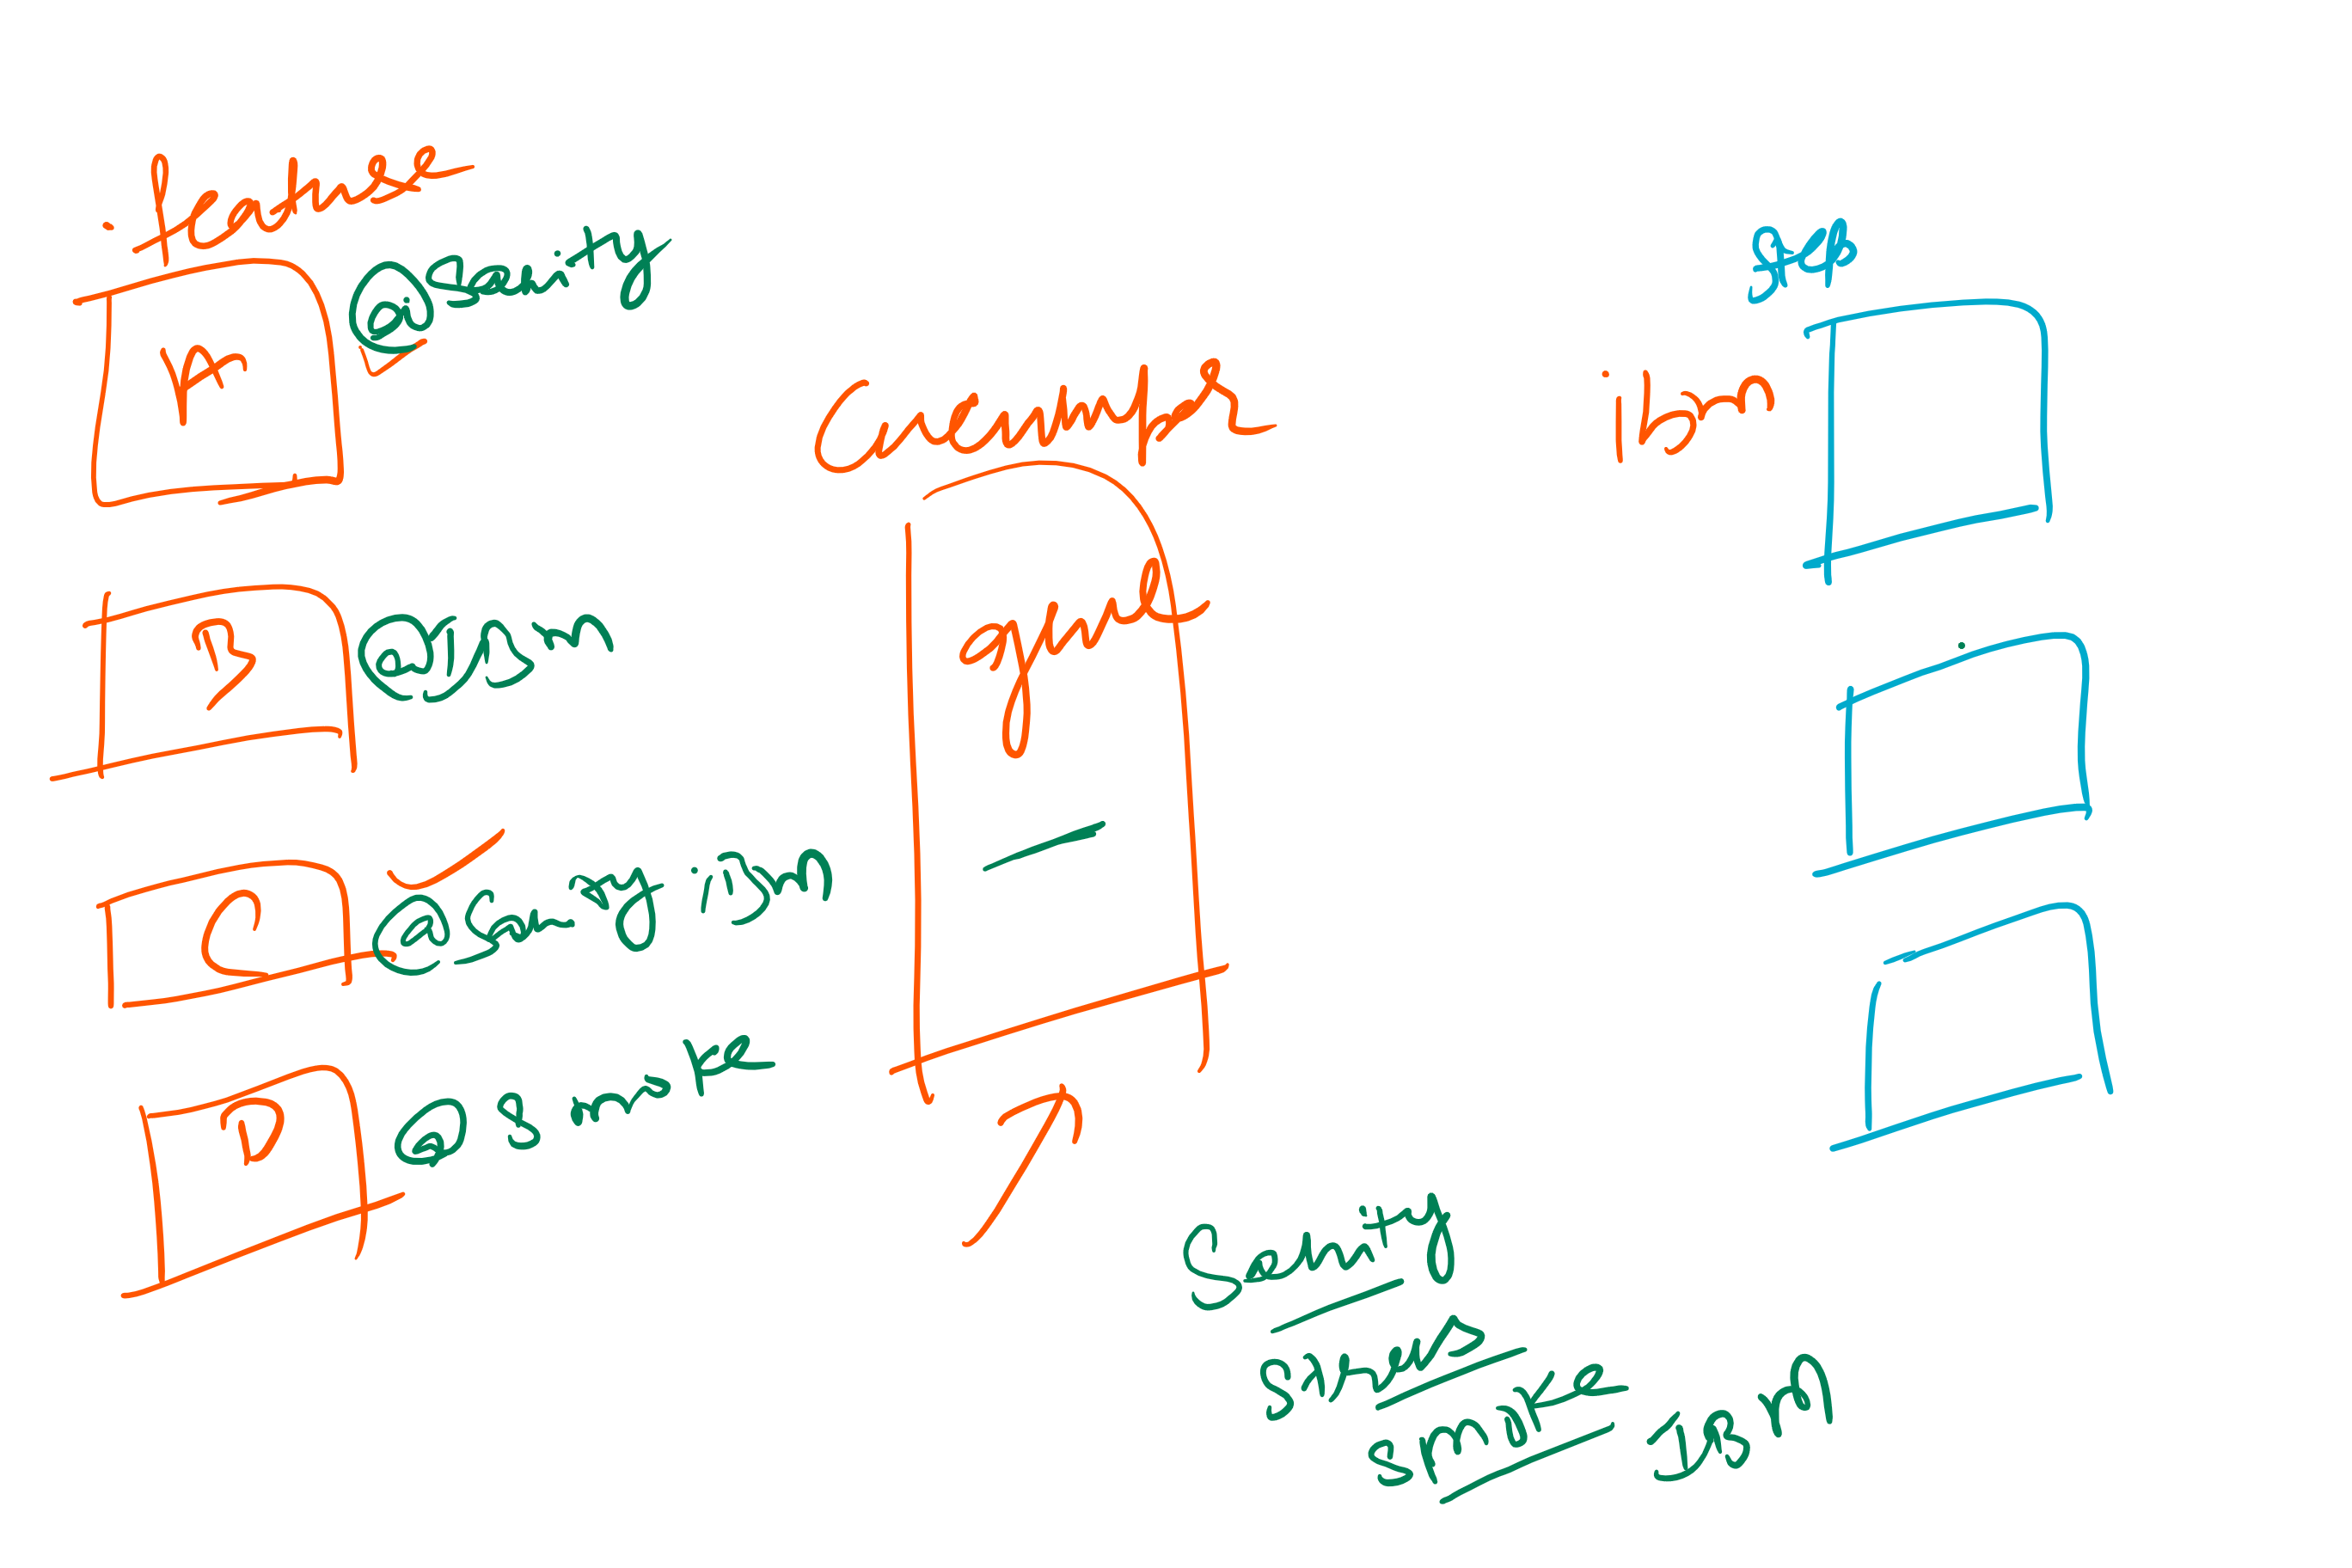 feature
A
@sanity
B
@IBM
C
@sanity ibm
D
@smoke
cucumber
step
ibm
Sanity
stress
smoke
IBM